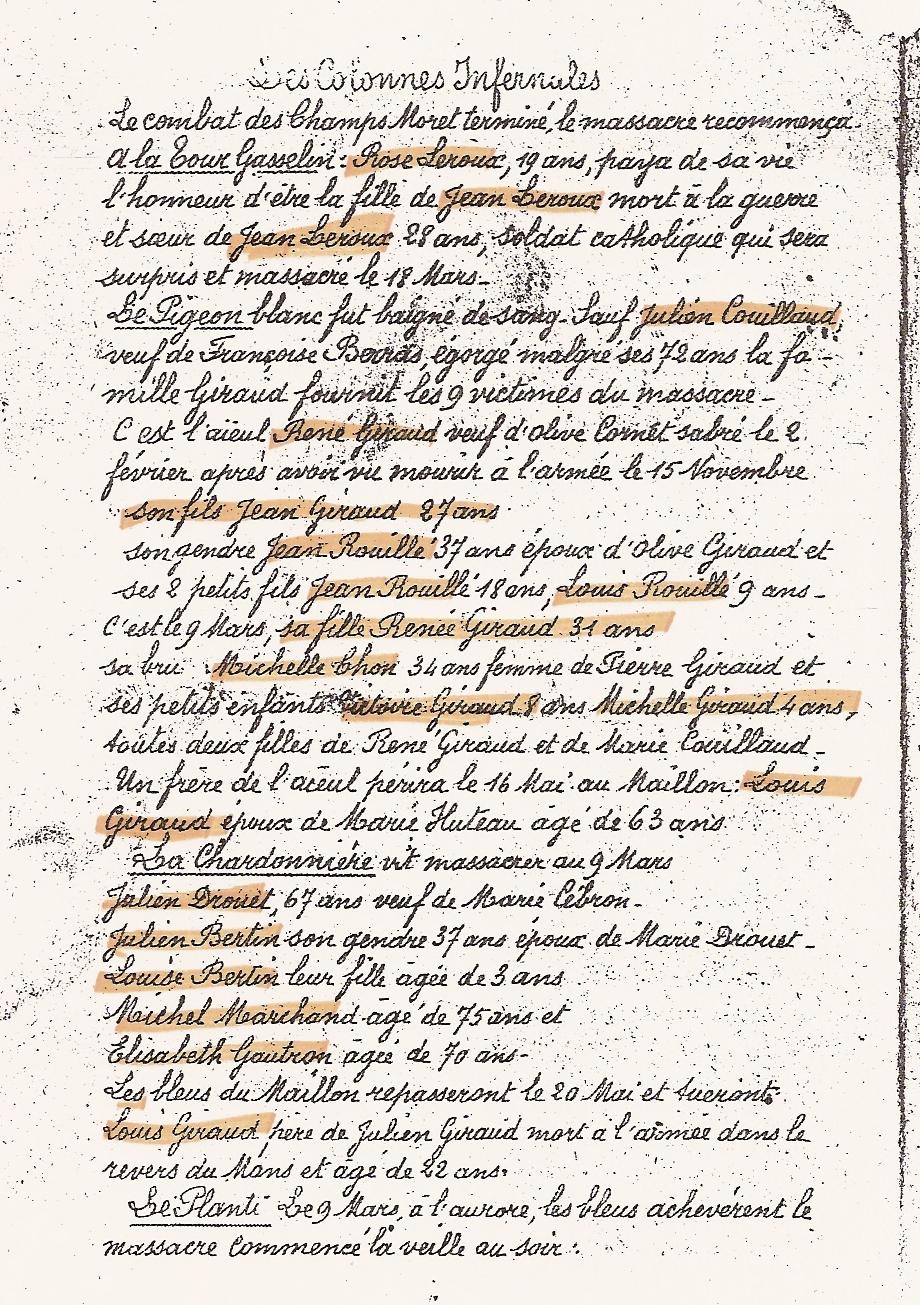 Des Colonnes Infernales
Le combat des Champs Moret terminé, le massacre recommença.
A la Tour Gasselin: Rose Leroux, 19 ans, paya de sa vie
l'honneur d'être la fille de Jean Leroux mort à la guerre
et sœur de Jean Leroux 28 ans, soldat catholique qui sera
surpris et massacré le 18 Mars_
Le Pigeon blanc fut baigné de sang_ Sauf Julien Couillaud,
veuf de Françoise égorgé malgré ses 72 ans la fa_
mille Giraud fournit les 9 victimes du massacre_
C'est l'aïeul René Giraud veuf d'Olive Cornet sabré le 2
février après avoir vu mourir à l'armée le 15 Novembre
son fils Jean Giraud 27 ans
son gendre Jean Rouillé 37 ans époux d'Olive Giraud et
ses 2 petits fils Jean Rouillé 18 ans, Louis Rouillé 9 ans_
C'est le 9 Mars, sa fille Renée Giraud 31 ans
sa bru Michelle Chon 34 ans femme de Pierre Giraud et
ses petits enfants Victoire Giraud 8 ans Michelle Giraud 4 ans,
toutes deux filles de René Giraud et de Marie Couillaud_
Un frère de l'aïeul périra le 16 Mai au Maillon: Louis
Giraud époux de Marie Huteau âgé de 63 ans
La Chardonnière vit massacrer au 9 Mars
Julien Drouet, 67 ans veuf de Marie Cébron_
Julien Bertin son gendre 37 ans époux de Marie Drouet_
Louise Bertin leur fille âgée de 3 ans
Michel Marchand âgé de 75 ans et
Elisabeth Gautron âgée de 70 ans_
Les bleus du Maillon repasseront le 20 Mai et tueront:
Louis Giraud père de Julien Giraud mort à l'armée dans le
revers du Mans et âgé de 22 ans.
Le Planti Le 9 Mars, à l'aurore, les bleus achevèrent le
massacre commencé la veille au soir: